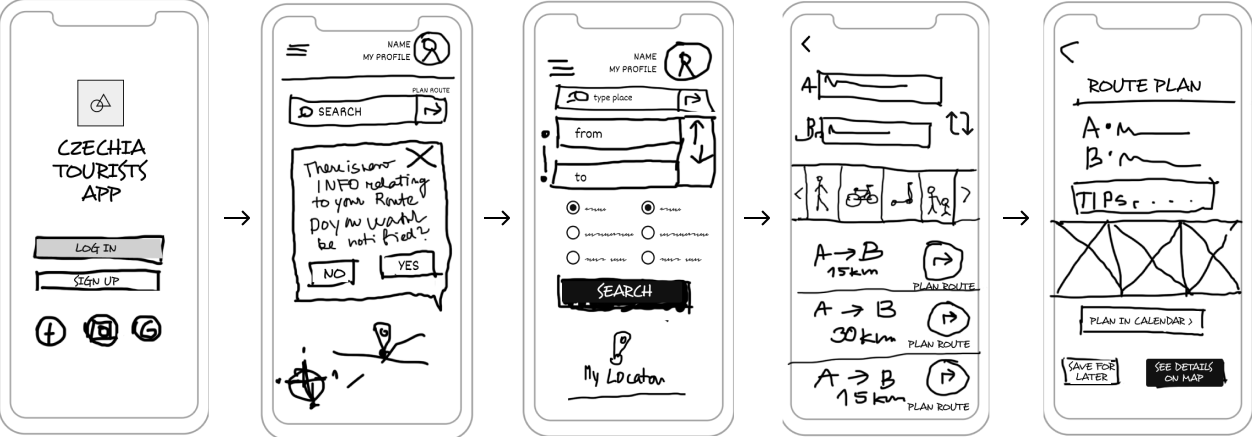 CZECHIA
TOURISTS
APP
LOG IN
SIGN UP
f
G
NAME
MY PROFILE
PLAN ROUTE
SEARCH
There is new
INFO relating
to your Route
Do you want
be notified?
NO
YES
NAME
MY PROFILE
type place
from
to
SEARCH
My Location
A
B
A → B
15 km
PLAN ROUTE
A → B
30 km
PLAN ROUTE
A → B
15 km
PLAN ROUTE
ROUTE PLAN
A
B
TIPS, . . . .
PLAN IN CALENDAR >
SAVE FOR
LATER
SEE DETAILS
ON MAP